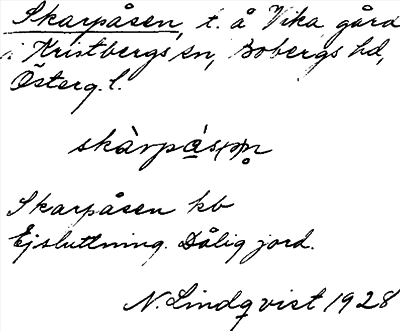 Skarpåsen, t. å Vika gård
i Kristbergs sn, Bobergs hd,
Österg. l.
skàrpá̲s(ə)n̥
Skarpåsen kb
Ej sluttning. Dålig jord.
N. Lindqvist 1928